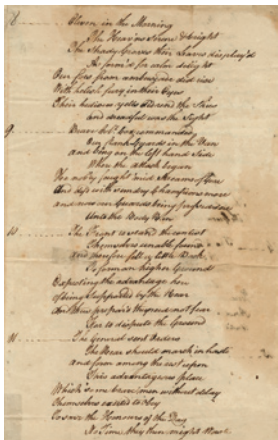 8 Eleven in the Morning
The Heav'ns Serene & bright
The Shady Groves their Leaves display'd
As form'd for calm delight
Our foes from ambuscade did rise
With hellish fury in their Eyes
Their hedious yells did rend the Skies
and dreadful was the Sight
9 Brave Col.º commanded
Our flank Guards in the Rear
and being on the left hand Side
When the attack began
He nobly fought 'mid Streams of Fire
And with Sunday Champions more
and was our Guards being
Unto the Body
10 The Front sustain'd the contest
Themselves unable found
and therefore fell a little Back
To form on higher Ground
Expecting the advantage
of being Supported by the Rear
And thus prepar'd they did not fear
For to dispute the Ground
11 The General sent Orders
The Rear should march in haste
and form among the
This advantageous place
Which some brave men without delay
Themselves to Obey
To save the Honours of the Day
No Time they then might Wast